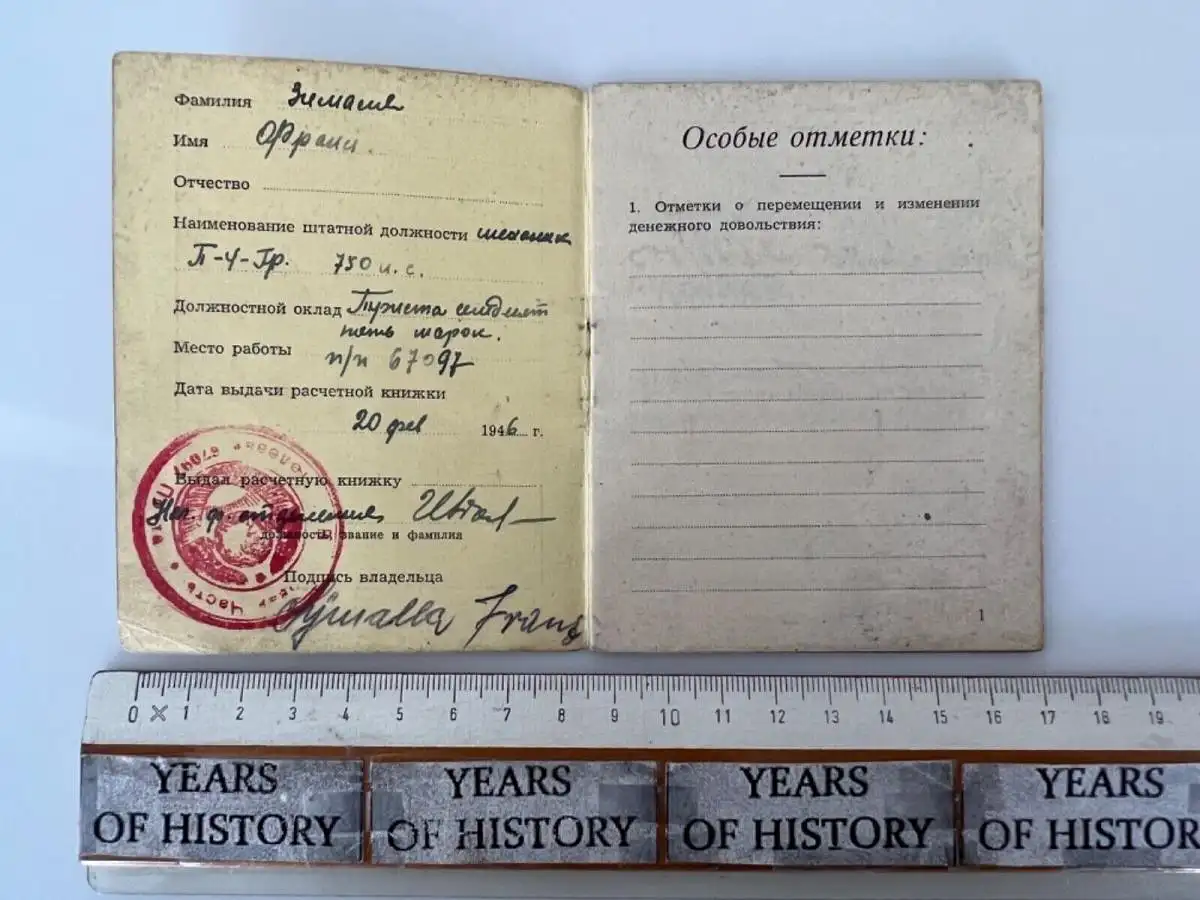 Фамилия
Имя Франц
Отчество
Наименование штатной должности механик
П-4-Гр. 750 и.с.
Должностной оклад Триста семдесят
пять марок.
Место работы п/п 67097
Дата выдачи расчетной книжки
20 фев 1946 г.
Выдал расчетную книжку
Нач. ф. отделения
должность, звание и фамилия
Подпись владельца
Franz
Часть
полевая 67097
Особые отметки:
1. Отметки о перемещении и изменении
денежного довольствия:
1
0 1 2 3 4 5 6 7 8 9 10 11 12 13 14 15 16 17 18 19
YEARS OF HISTORY
YEARS OF HISTORY
YEARS OF HISTORY
YEARS OF HISTOR